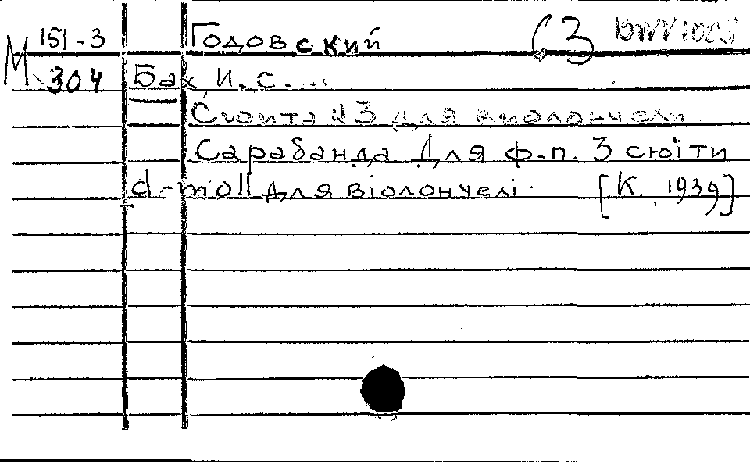 151-3 Годовский С3
М 304 Бах, И. С.
Сюита №3 для виолончели
Сарабанда для ф.п. З сюіти
d-moll для віолончелі. [К. 1939]